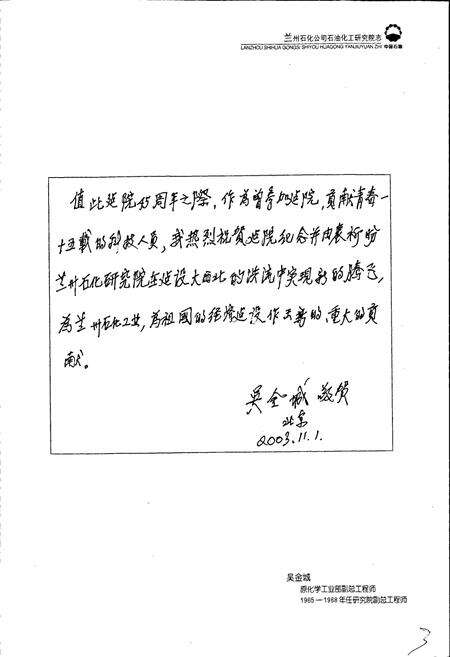 兰州石化公司石油化工研究院志
LANZHOU SHIHUA GONGSI SHIYOU HUAGONG YANJIUYUAN ZHI
中国石油
值此建院45周年之際，作為曾参加建院，貢献青春一
十五載的科技人員，我热烈祝賀建院纪念并由衷祈盼
兰州石化研究院在建设大西北的洪流中实現新的腾飞，
為兰州石化工业，為祖國的经济建设作出新的、重大的貢
献。
吴金城 敬贺
北京
2003.11.1.
吴金城
原化学工业部副总工程师
1965－1968年任研究院副总工程师
3